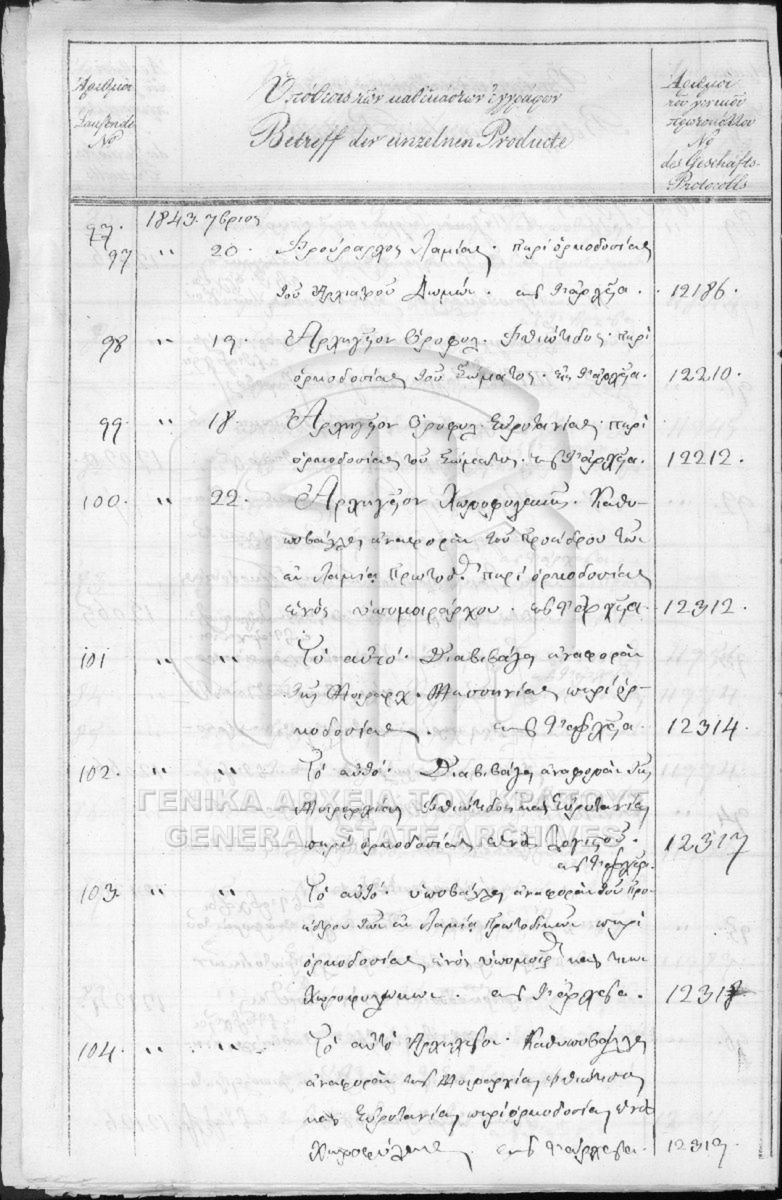 Ἀριθμοὶ
Laufende
No
Ὑπόθεσις τῶν καθ' ἕκαστον ἐγγράφων
Betreff der einzelnen Producte
Ἀριθμοὶ
τοῦ γενικοῦ
πρωτοκόλλου
No
des Geschäfts-
Protocolls
97. 1843. 7βριος
97 " 20. Φρούραρχος Λαμίας. περὶ ὁρκοδοσίας
τοῦ Ἀρχιάτρου 12186.
98 " 19. Ἀρχηγεῖον Ὁροφυλ. Φθιώτιδος. περὶ
ὁρκοδοσίας τοῦ Σώματος. 12210.
99 " 18. Ἀρχηγεῖον Ὁροφυλ. Εὐρυτανίας. περὶ
ὁρκοδοσίας τοῦ Σώματος. 12212.
100. " 22. Ἀρχηγεῖον Χωροφυλακῆς. Καθυ-
ποβάλλει ἀναφορὰν τοῦ Προέδρου τῶν
ἐν Λαμίᾳ Πρωτοδ. περὶ ὁρκοδοσίας
ἑνὸς ὑπομοιράρχου. 12312.
101 " " Τὸ αὐτό. Διαβιβάζει ἀναφορὰν
τῆς Μοιραρχ. Μεσσηνίας περὶ ὁρ-
κοδοσίας. 12314.
102. " " Τὸ αὐτό. Διαβιβάζει ἀναφορὰν τῆς
Μοιραρχίας Φθιώτιδος καὶ Εὐρυτανίας
περὶ ὁρκοδοσίας ἑνὸς 12317
103. " " Τὸ αὐτό. ὑποβάλλει ἀναφορὰν τοῦ Προ-
έδρου τῶν ἐν Λαμίᾳ Πρωτοδικῶν περὶ
ὁρκοδοσίας ἑνὸς ὑπομοιρ. καὶ
Χωροφυλάκων. 12318
104. " " Τὸ αὐτὸ Ἀρχηγεῖον. Καθυποβάλλει
ἀναφορὰν τῆς Μοιραρχίας Φθιώτιδος
καὶ Εὐρυτανίας περὶ ὁρκοδοσίας ἑνὸς
Χωροφύλακος 12319.
ΓΕΝΙΚΑ ΑΡΧΕΙΑ ΤΟΥ ΚΡΑΤΟΥΣ
GENERAL STATE ARCHIVES